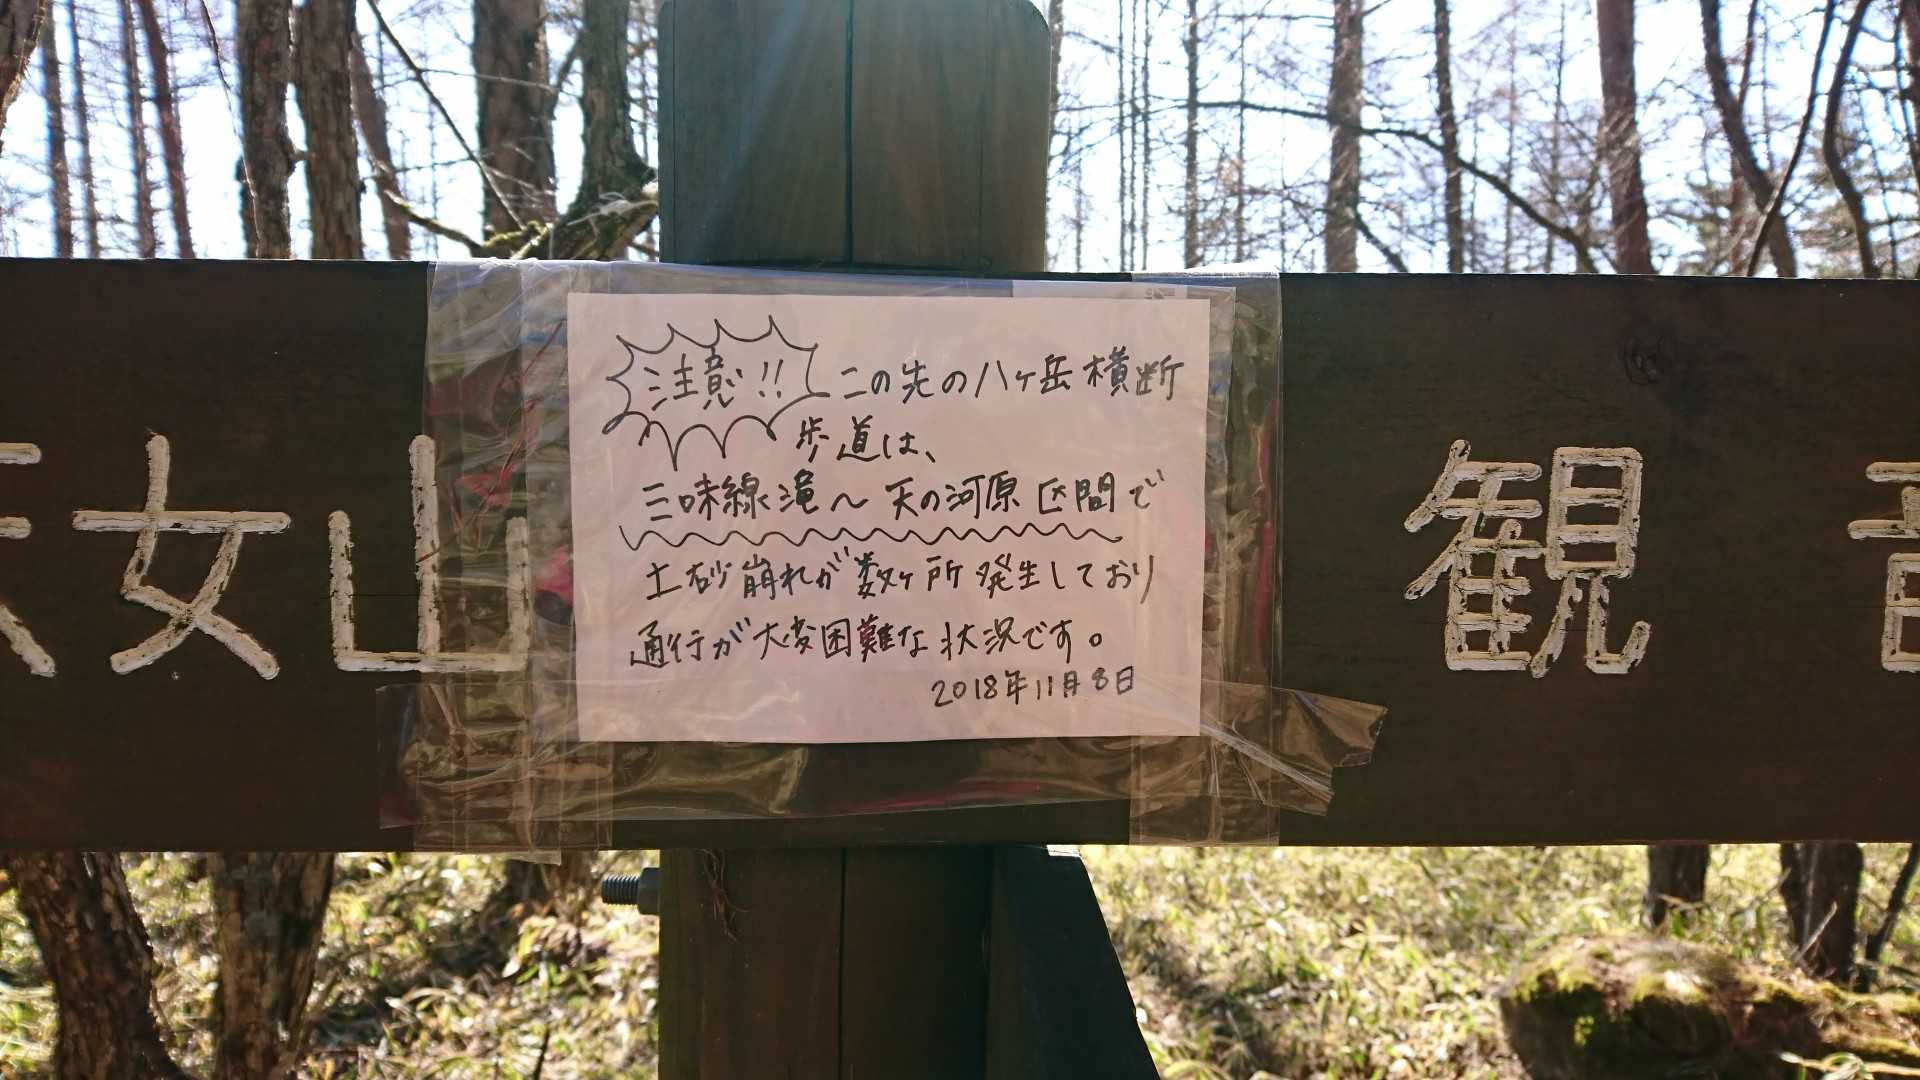 注意!! この先の八ヶ岳横断
歩道は、
三味線滝～天の河原区間で
土砂崩れが数ヶ所発生しており
通行が大変困難な状況です。
2018年11月8日
女山
観